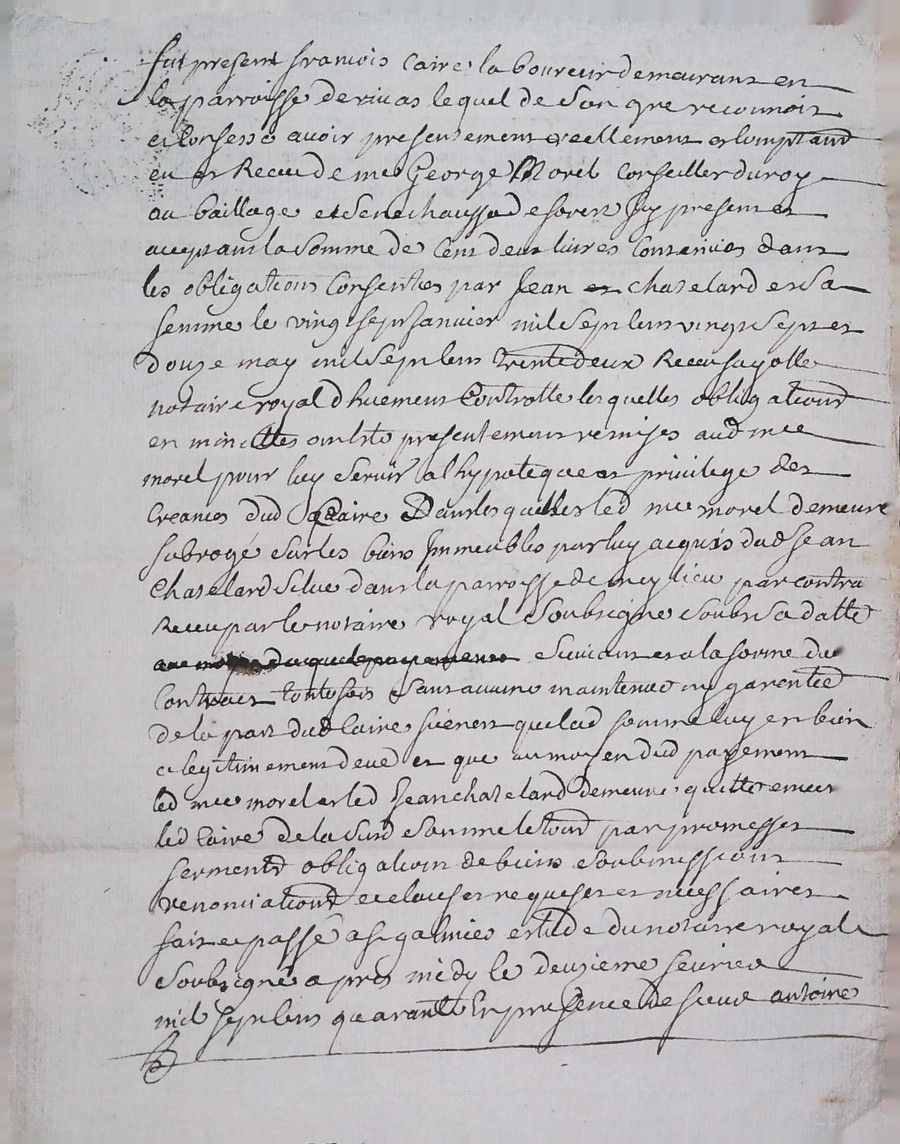 fut present francois Caire laboureur demeurant en
la parroisse de rivas lequel de son gre reconnoit
et Confesse avoir presentement reellement et Comptant
eu et Receu de me George Morel Conseiller du roy
au bailliage et Senechaussé de forest Icy present et
acceptant la Somme de Cent deux livres Contenües dans
les obligations Consenties par Jean chatelard et Sa
femme le vingt sept Janvier mil Sept Cens vingt Sept et
douze may mil Sept Cens trente deux Receu fayolle
notaire royal dhuement Controlle lesquelles obligations
en minuttes ont été presentement remises aud me
morel pour luy Servir a lhypoteque et privilege des
Creances dud Caire Dans lesquelles led me morel demeure
Subrogé Sur les biens Immeubles par luy acquis dud Jean
Chatelard Situe dans la parroisse de meylieu par contra
Receu par le notaire royal Soubsigne Soubs Sa datte
Suivant et a la forme du
Contract toutefois Sans aucune maintenüe ny garentie
de la part dud Caire Si nest que lad Somme luy est bien
et legitimement deue et que au moyen dud payement
led me morel et led Jean chatelard demeure quitte envers
led Caire de la Susd Somme le tout par promesses
serments obligation de biens Soubmissions
renonciations et clauses requises et necessaires
fait et passé a St galmier estude du notaire royal
Soubsigné apres midy le deuzieme fevrier
mil Sept Cens quarante En presence de Sieur antoine